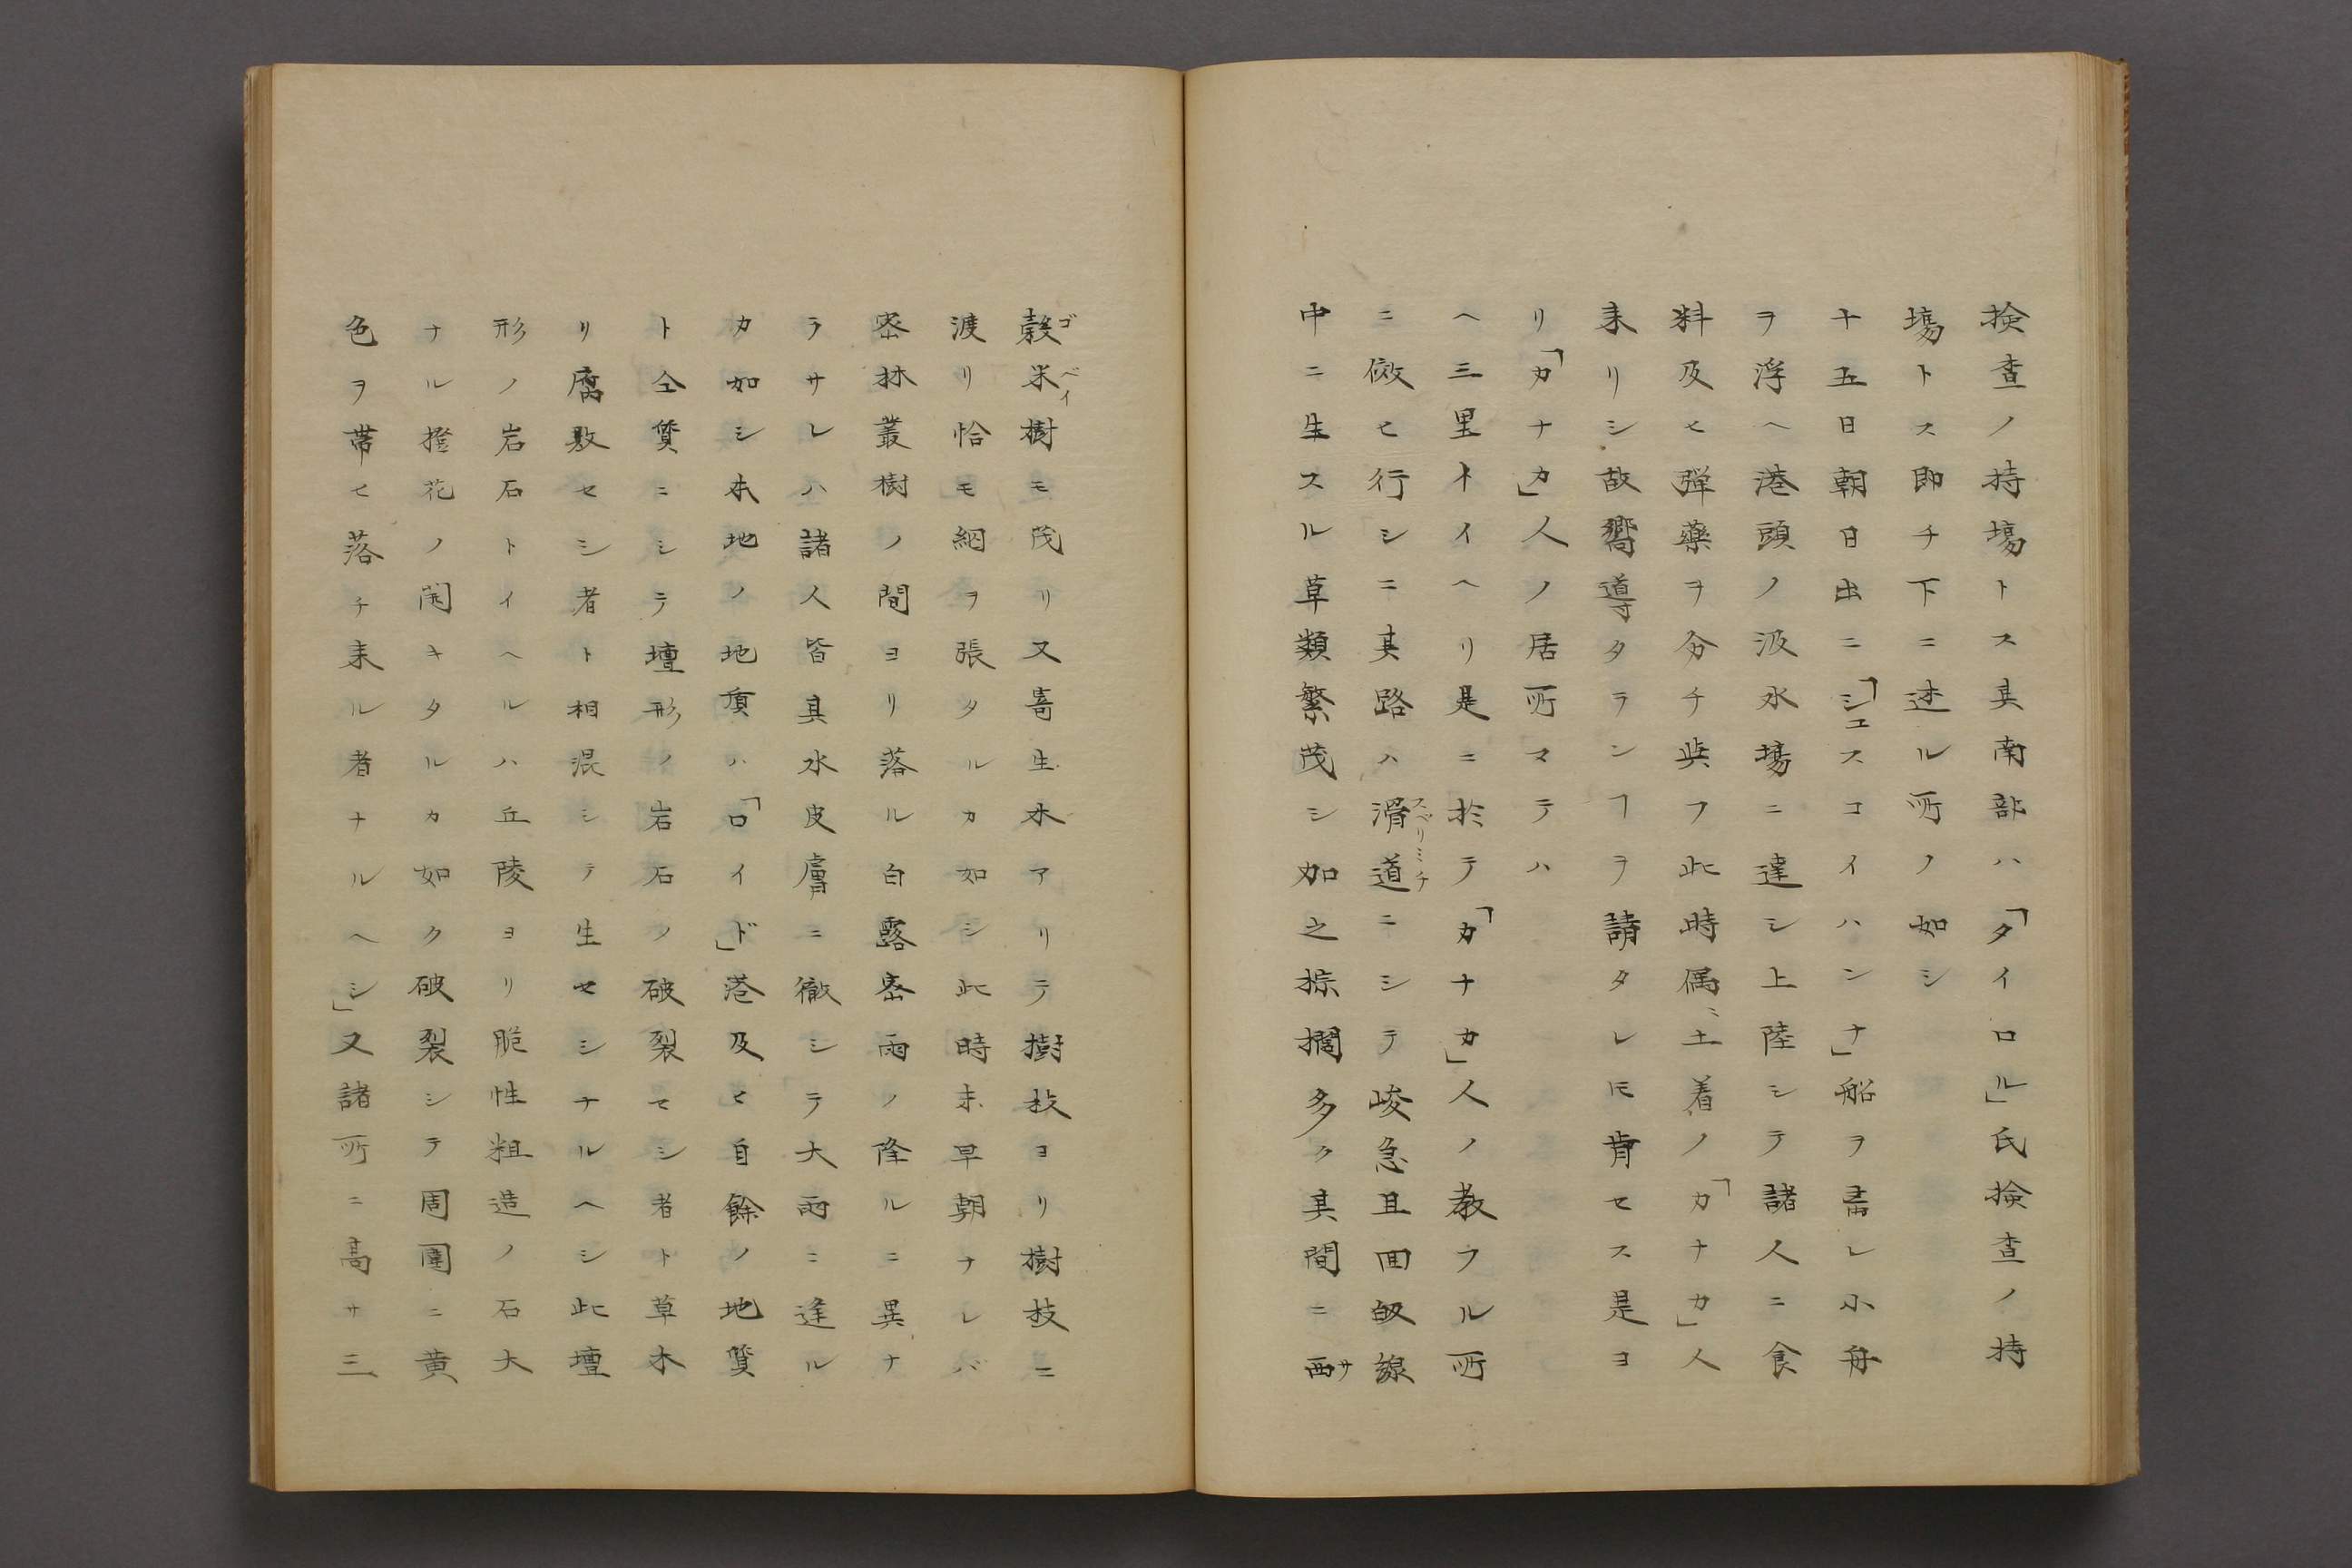 捡査ノ持塲トス其南部ハ「タイロル」氏捡査ノ持
塲トス即チ下ニ述ル所ノ如シ
十五日朝日出ニ「シエスコイハンナ」船ヲ離レ小舟
ヲ浮ヘ港頭ノ汲水塲ニ達シ上陸シテ諸人ニ食
料及ヒ弾藥ヲ分チ與フ此時偶〻土着ノ「カナカ」人
来リシ故嚮導タランヿヲ請タレ𪜈肯セス是ヨ
リ「カナカ」人ノ居所マテハ
ヘ三里トイヘリ是ニ於テ「カナカ」人ノ教フル所
ニ倣ヒ行シニ其路ハ滑道ニシテ峻急且囬皈線
スベリミチ
中ニ生スル草類繁茂シ加之棕櫚多ク其間ニ西
サ
穀米樹モ茂リ又寄生木アリテ樹枝ヨリ樹枝ニ
ゴベイ
渡リ恰モ網ヲ張タルカ如シ此時未早朝ナレバ
密林叢樹ノ間ヨリ落ル白露密雨ノ降ルニ異ナ
ラサレハ諸人皆其水皮膚ニ徹シテ大雨ニ逢ル
カ如シ本地ノ地質ハ「ロイド」港及ヒ自餘ノ地質
ト仝質ニシテ壇形ノ岩石ノ破裂セシ者ト草木
リ腐敗セシ者ト相混シテ生セシナルヘシ此壇
形ノ岩石トイヘルハ丘陵ヨリ脆性粗造ノ石大
ナル撞花ノ開キタルカ如ク破裂シテ周圍ニ黄
色ヲ帯ヒ落チ来ル者ナルヘシ」又諸所ニ高サ三